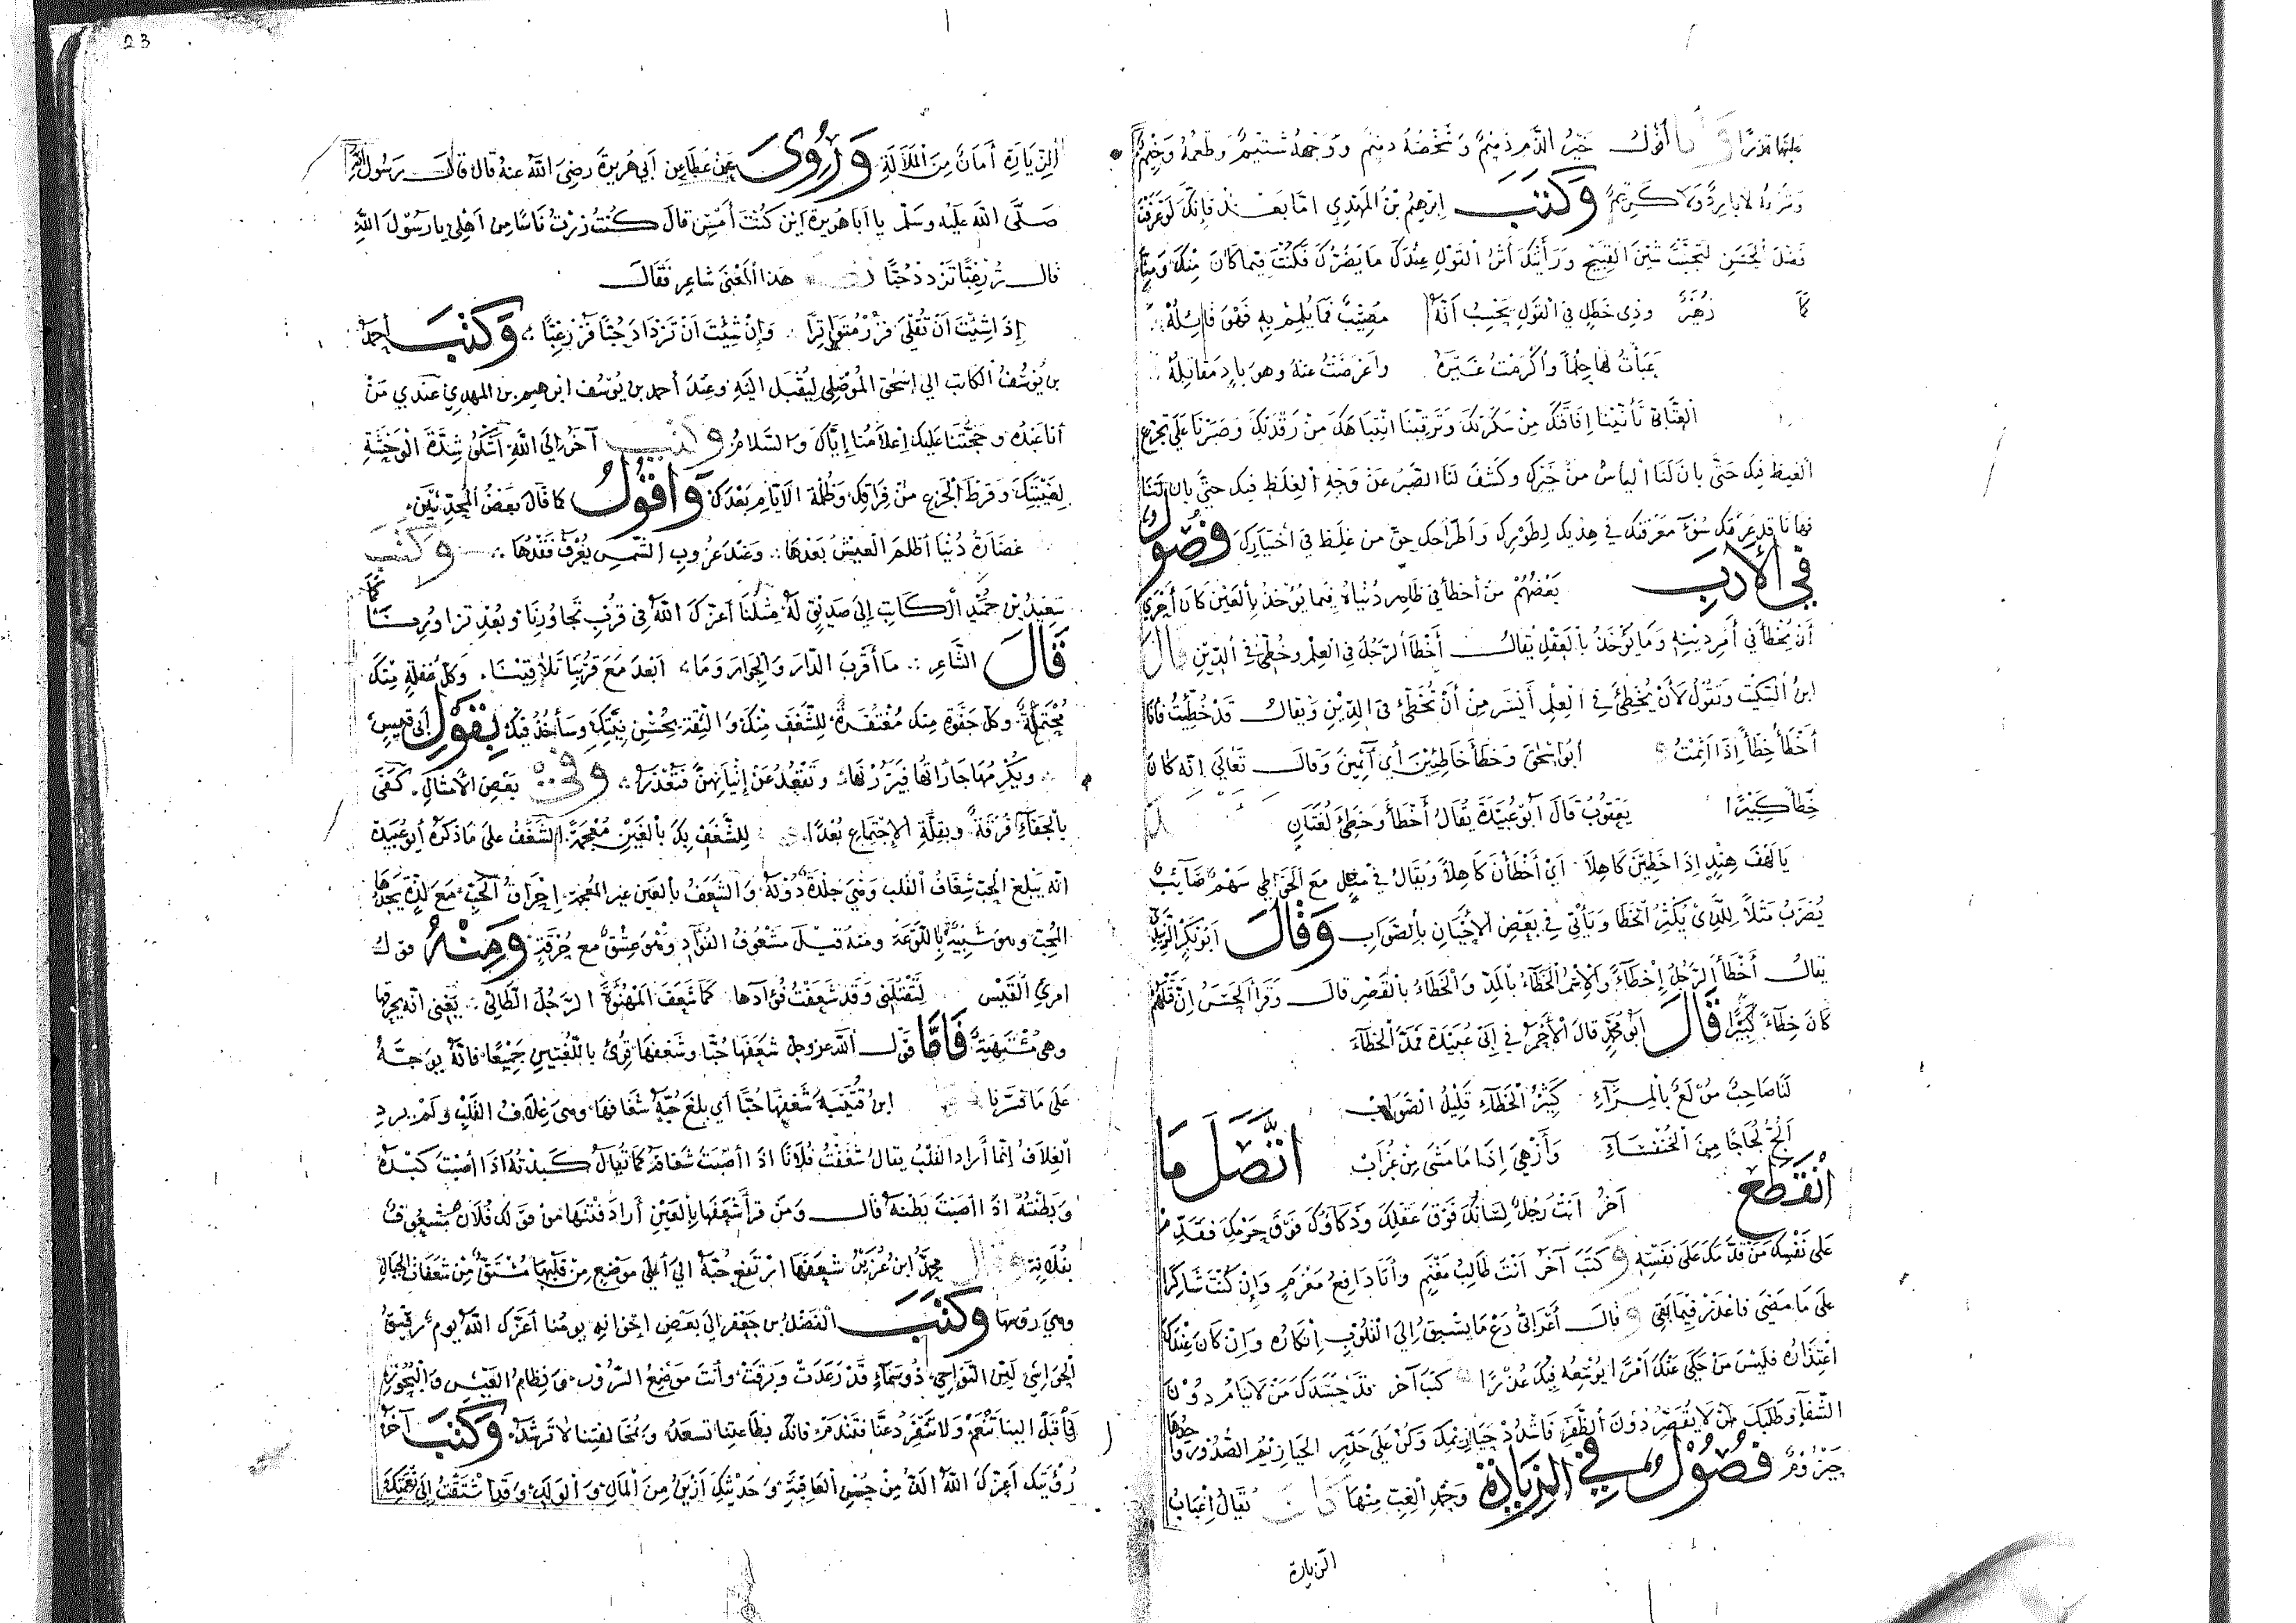 عليها قذرا وأنا أقول خير الذم ذميم وشخصه دميم ووجهه شتيم وطعمه وخيم
وشربه لا بارد ولا كريم وكتب إبرهيم بن المهدي اما بعد فإنك لو عرفت
فضل الحسن لتجنبت شين القبيح ورأيتك أثر القول عندك ما يضرك فكنت فيما كان منك ومنا
كما زهير وذي خطل في القول يحسب أنه مصيب فما يلمم به فهو قائله
عبأت لها حلما وأكرمت غيره وأعرضت عنه وهو باد مقاتله
العتابي تأنينا إفاقتك من سكرتك وترقبنا انتباهك من رقدتك وصبرنا على تجرع
الغيظ فيك حتى بان لنا الياس من خيرك وكشف لنا الصبر عن وجه الغلظ فيك حتى بان لنا
فها نا قد عرفتك سوء معرفتك في هذيك لطورك واطراحك حق من غلظ في اختيارك فصول
في الأدب بعضهم من أخطأ في ظاهر دنياه فيما يؤخذ بالعين كان أحرى
أن يخطأ في أمر دينه وما يؤخذ بالعقل يقال أخطأ الرجل في العلم وخطئ في الدين قال
ابن السكيت وتقول لأن تخطئ في العلم أيسر من أن تخطئ في الدين ويقال قد خطئت فأنا
أخطأ خطأ إذا أثمت أبو إسحق وخطأ خاطئين أي آثمين وقال تعالى انه كان
خطأ كبيرا يعقوب قال أبو عبيدة يقال أخطأ وخطئ لغتان
يا لهف هند إذا خطين كاهلا أي أخطأن كاهلا ويقال في مثل مع الخواطي سهم صائب
يضرب مثلا للذي يكثر الخطا ويأتي في بعض الأحيان بالصواب وقال أبو بكر
يقال أخطأ الرجل إخطاء والإسم الخطاء بالمد والخطاء بالقصر قال وقرأ الحسن إن قتلهم
كان خطاء كبيرا قال أبو محمد قال الأحمر في أبي عبيدة فمد الخطاء
لنا صاحب مولع بالمراء كثير الخطاء قليل الصواب
ألج لجاجا من الخنفساء وأزهى إذا ما مشى من غراب اتصل ما
انقطع آخر أنت رجل لسانك فوق عقلك وذكاؤك فوق حزمك فقدم
على نفسك من قدمك على نفسه وكتب آخر أنت طالب مغنم وأنا دافع مغرم وإن كنت شاكرا
على ما مضى فاعذر فيما بقي وقال أعرابي دع ما يسبق إلى القلوب إنكاره وإن كان عندك
اعتذاره فليس من حكى عنك أمرا يوسعه فيك عذرا كتب آخر قد حسدك من لا ينام دون
الشفا وطلبك من لا يقصر دون الظفر فاشدد حيازيمك وكن على حذر الحيازيم الصدور واحدها
حيزوم فصول في الزيارة وحمد الغب منها كان يقال إغباب
الزيارة
الزيارة أمان من الملالة وروى عن عطا عن أبي هريرة رضي الله عنه قال قال رسول الله
صلى الله عليه وسلم يا أبا هريرة أين كنت أمس قال كنت زرت ناسا من أهلي يا رسول الله
قال زر غبا تزدد حبا هذا المعنى شاعر فقال
إذا شيت أن تقلى فزر متواترا وإن شئت أن تزداد حبا فزر غبا وكتب أحمد
بن يوسف الكاتب الى إسحق الموصلي ليقبل اليه وعند أحمد بن يوسف ابرهيم بن المهدي عندي من
أنا عبده وحجتنا عليك إعلامنا إياك والسلام وكتب آخر إلى الله أشكو شدة الوحشة
لغيبتك وفرط الجزع من فراقك وظلمة الايام بعدك وأقول كما قال بعض المحدثين
غضارة دنيا أظلم العيش بعدها وعند غروب الشمس يعرف فقدها وكتب
سعيد بن حميد الكاتب إلى صديق له مثلنا أعزك الله في قرب تجاورنا وبعد تزاورنا كما
قال الشاعر ما أقرب الدار والجوار وما أبعد مع قربنا تلاقينا وكل غفلة منك
محتملة وكل جفوة منك مغتفرة للشغف منك والثقة بحسن نيتك وسأخذ فيك بقول أبي قيس
ويكرمها جاراتها فيزرنها وتقعد عن إتيانهن فتعذر وفي بعض الأمثال كفى
بالجفاء فرقة وبقلة الاجتماع بعدا للشغف بك بالغين معجمة الشغف على ما ذكره أبو عبيدة
انه يبلغ الحب شغاف القلب وهي جلدة دونه والشعف بالعين غير المعجمة إحراق الحب مع لذة يجدها
المحب وهو شبيه باللوعة ومنه قيل مشعوف الفؤاد وهو عشق مع حرقة ومنه قول
امرئ القيس لتقتلني وقد شعفت فؤادها كما شعف المهنوءة الرجل الطالي يعني انه يحرقها
وهي مشتهية فأما قول الله عز وجل شعفها حبا وشغفها قرئ باللغتين جميعا فانه يوجه
على ما فسرنا ابن قتيبة شغفها حبا أي بلغ حبه شغافها وهي غلاف القلب ولم يرد
الغلاف إنما أراد القلب يقال شغفت فلانا اذا أصبت شغافه كما يقال كبدته اذا أصبت كبده
وبطنته اذا أصبت بطنه قال ومن قرأ شعفها بالعين أراد فتنها من قولك فلان مشعوف
بفلانة وقال محمد ابن عزيز شعفها ارتفع حبه الى أعلى موضع من قلبها مشتق من شعفات الجبال
وهي رؤسها وكتب الفضل بن جعفر الى بعض اخوانه يومنا أعزك الله يوم رقيق
الحواشي لين النواحي ذو سماء قد رعدت وبرقت وأنت موضع السرور ونظام العيش والحبور
فأقبل الينا تنعم ولا تنفرد عنا فتندم فانك بطاعتنا تسعد وبمخالفتنا لا ترشد وكتب آخر
رؤيتك أعزك الله ألذ من حسن العافية وحديثك أزين من المال والولد وقد اشتقت إلى نغمتك
23